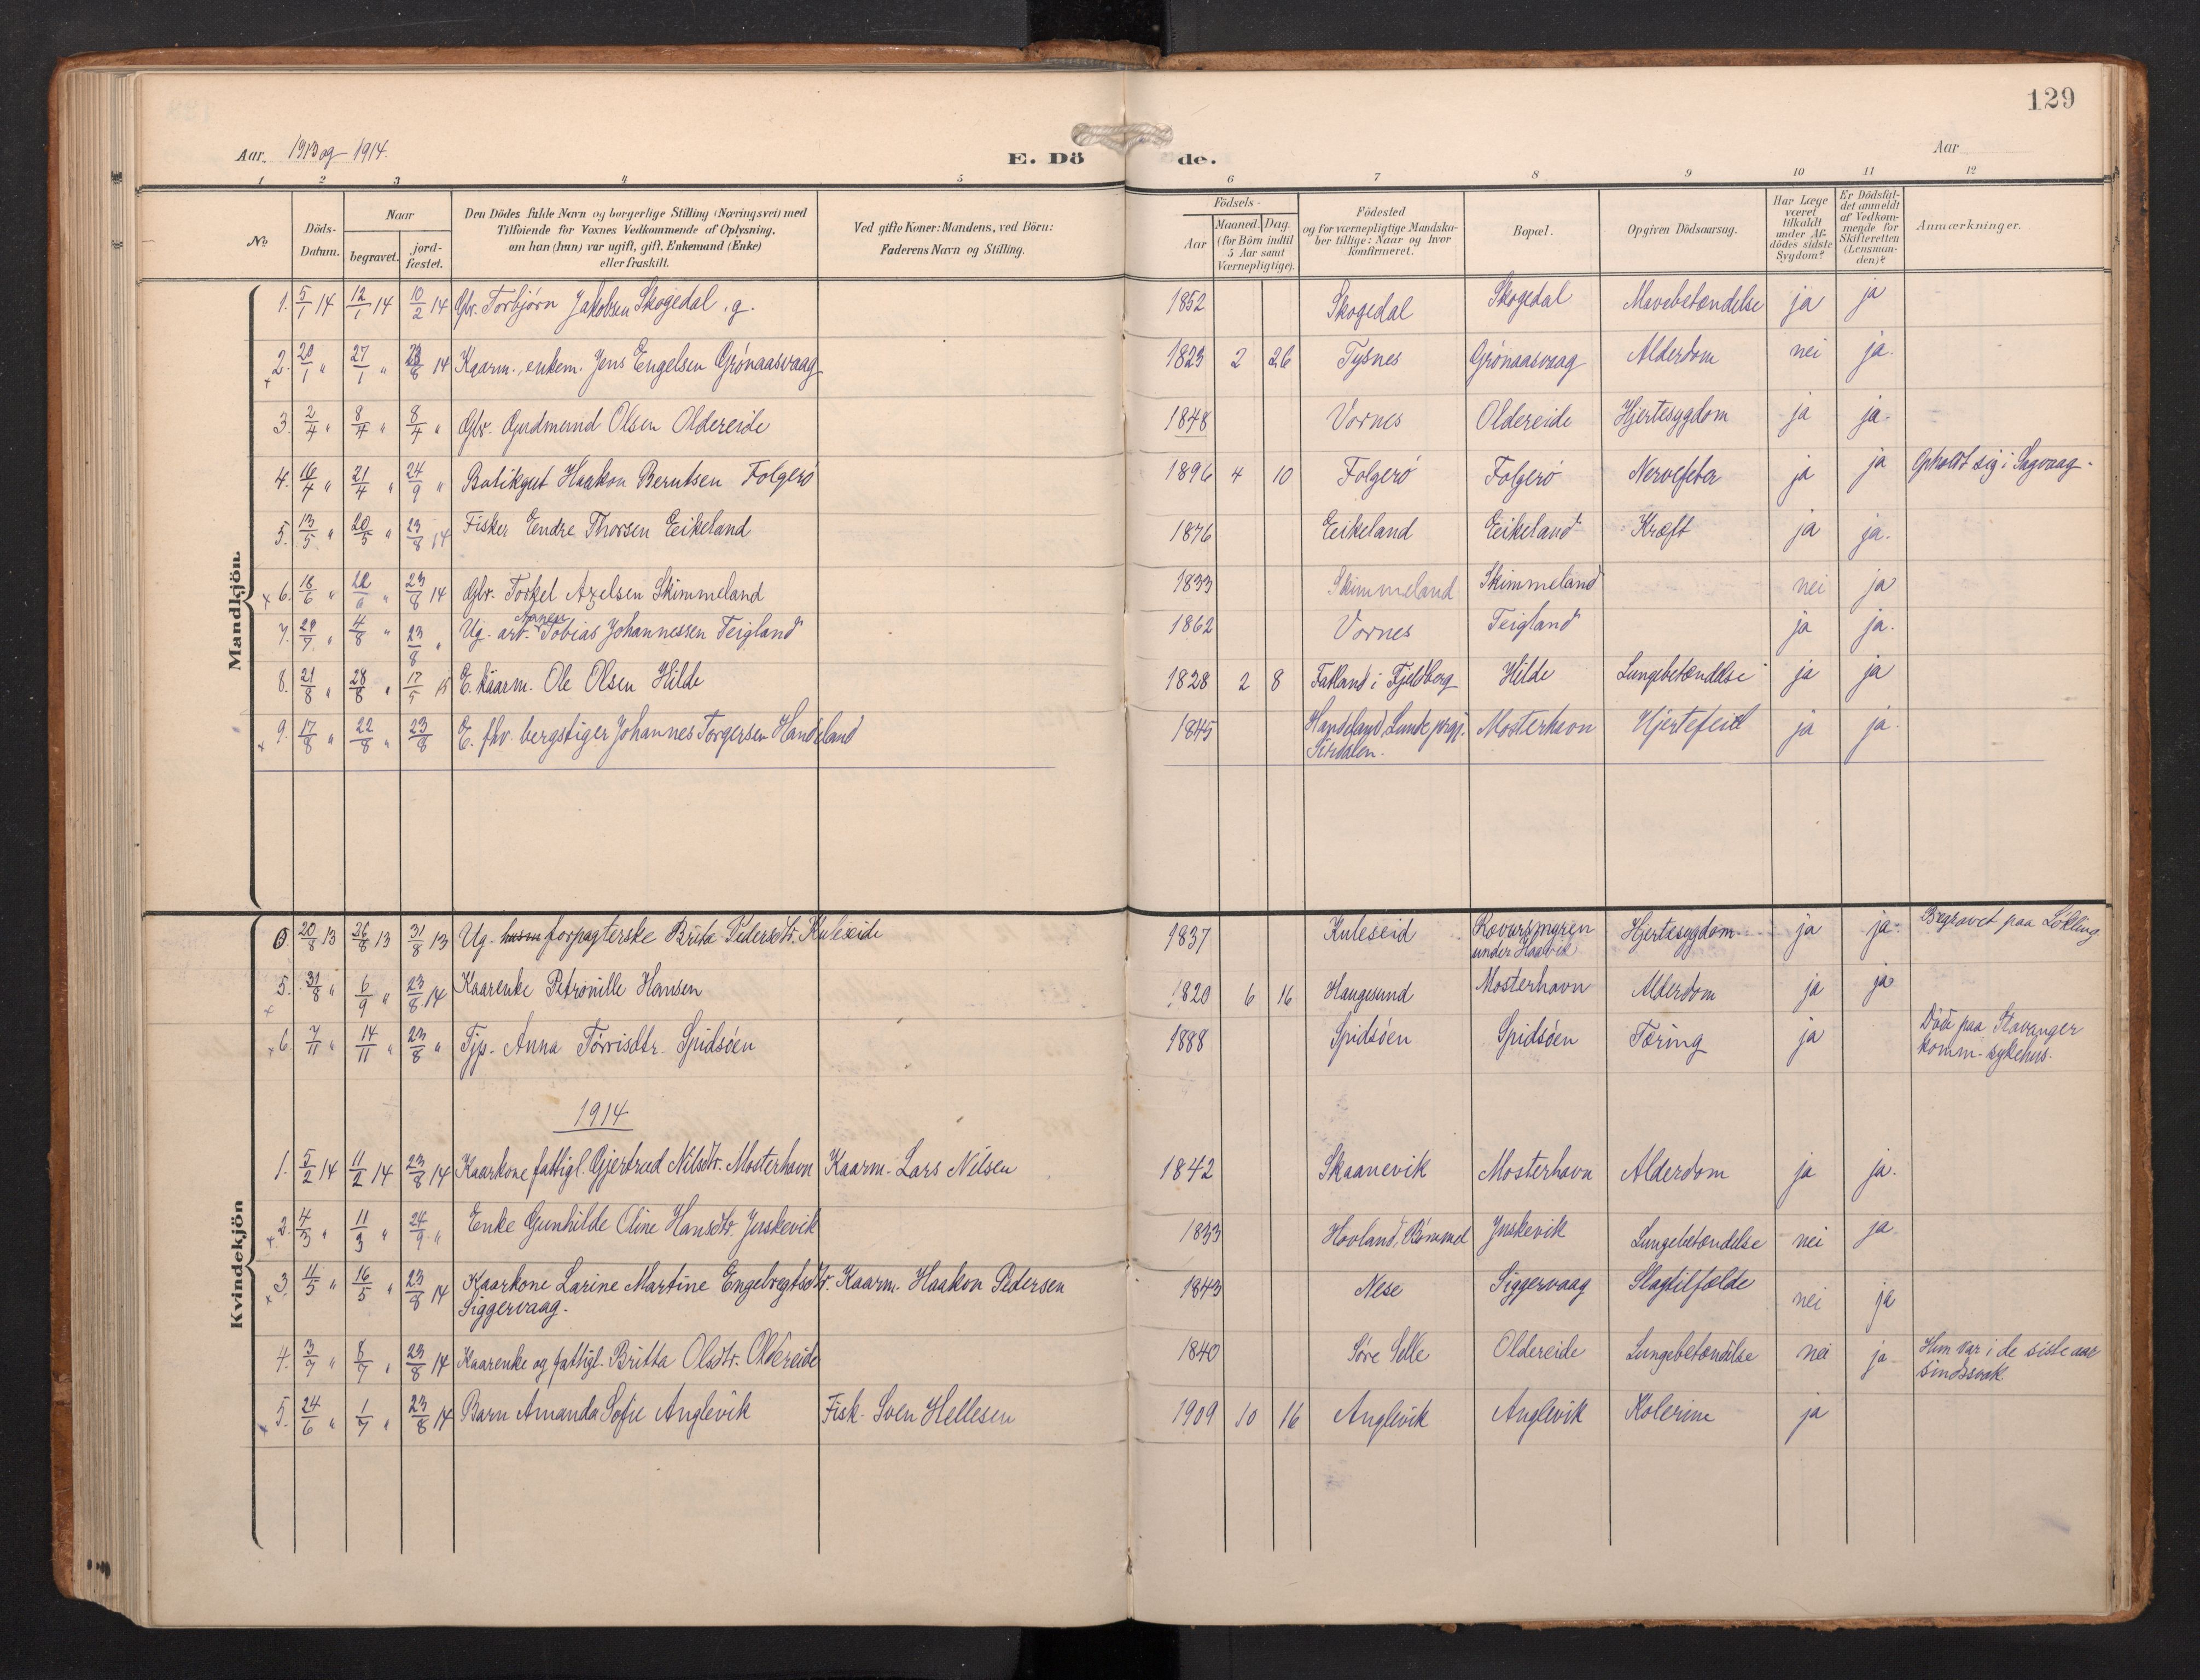 129
Aar. 1913 og 1914.
E. Dö de.
Aar
1 2 3 4 5 6 7 8 9 10 11 12
No
Döds-Datum.
Naar begravet. jord-fæstet.
Den Dödes fulde Navn og borgerlige Stilling (Næringsvei) med
Tilföiende for Voxnes Vedkommende af Oplysning,
om han (hun) var ugift, gift, Enkemand (Enke)
eller fraskilt.
Ved gifte Koner: Mandens, ved Börn:
Faderens Navn og Stilling.
Födsels-
Aar Maaned. Dag.
(for Börn indtil
5 Aar samt
Værnepligtige).
Födested
og for værnepligtige Mandska-
ber tillige: Naar og hvor
konfirmeret.
Bopæl.
Opgiven Dödsaarsag.
Har Læge
været
tilkaldt
under Af-
dödes sidste
Sygdom?
Er Dödsfal-
det anmeldt
af Vedkom-
mende for
Skifteretten
(Lensman-
den)?
Anmærkninger.
Mandkjön.
1. 5/1 14 12/1 14 10/2 14 Gbr. Torbjørn Jakobsen Skogedal, g. 1852 Skogedal Skogedal Mavebetændelse ja ja
2. 20/1 " 27/1 " 23/8 14 Kaarm., enkem. Jens Engelsen Grønaasvaag 1823 2 26 Tysnes Grønaasvaag Alderdom nei ja.
3. 2/4 " 8/4 " 8/4 " Gbr. Gudmund Olsen Oldereide 1848 Vornes Oldereide Hjertesygdom ja ja.
4. 16/4 " 21/4 " 24/9 " Butikgut Haakon Berntsen Folgerø 1896 4 10 Folgerø Folgerø Nervefeber ja ja Opholdt sig i Sagvaag.
5. 13/5 " 20/5 " 23/8 14 Fisker Endre Thorsen Eikeland 1876 Eikeland Eikeland Kræft ja ja.
6. 18/6 " /6 " 23/8 14 Gbr. Torkel Axelsen Skimmeland 1833 Skimmeland Skimmeland nei ja
7. 29/7 " 4/8 " 23/8 " Ug. arb. Tobias Johannessen Teigland 1862 Vornes Teigland ja ja.
8. 21/8 " 28/8 " 17/5 15 E. kaarm. Ole Olsen Hilde 1828 2 8 Fatland i Fjeldberg Hilde Lungebetændelse ja ja
9. 17/8 " 22/8 " 23/8 E. fhv. bergstiger Johannes Torgersen Handeland 1845 Handeland, Lunde prgj. Mosterhavn Hjertefeil ja ja.
Sirdalen.
Kvindekjön
20/8 13 26/8 13 31/8 13 Ug. husm forpagterske Brita Pedersdtr. Kuleseide 1837 Kuleseid Rovursmyren Hjertesygdom ja ja. Begravet paa Løkling
under Haavik
5. 31/8 " 6/9 " 23/8 14 Kaarenke Petronille Hansen 1820 6 16 Haugesund Mosterhavn Alderdom ja ja
6. 7/11 " 14/11 " 23/8 " Tjp. Anna Tørrisdtr. Spidsøen 1888 Spidsøen Spidsøen Tæring ja Døde paa Stavanger
komm. sykehus.
1914
1. 5/2 14 11/2 14 23/8 14 Kaarkone fattigl. Gjertrud Nilsdtr. Mosterhavn Kaarm. Lars Nilsen 1842 Skaanevik Mosterhavn Alderdom ja ja.
2. 4/3 " 11/3 " 24/9 " Enke Gunhilde Oline Hansdtr. Juskevik 1833 Hovland, Bømmel Juskevik Lungebetændelse nei ja
3. 11/5 " 16/5 " 23/8 14 Kaarkone Larine Martine Engebregtsdtr. Kaarm. Haakon Pedersen 1843 Nese Siggervaag Slagtilfælde nei ja
Siggervaag.
4. 3/7 " 8/7 " 23/8 14 Kaarenke og fattigl. Britta Olsdtr. Oldereide 1840 Søre Selle Oldereide Lungebetændelse nei ja Hun var i de siste aar
sindssvak
5. 24/6 " 1/7 " 23/8 14 Barn Amanda Sofie Anglevik Fisk. Sven Hellesen 1909 10 16 Anglevik Anglevik Kolerine ja